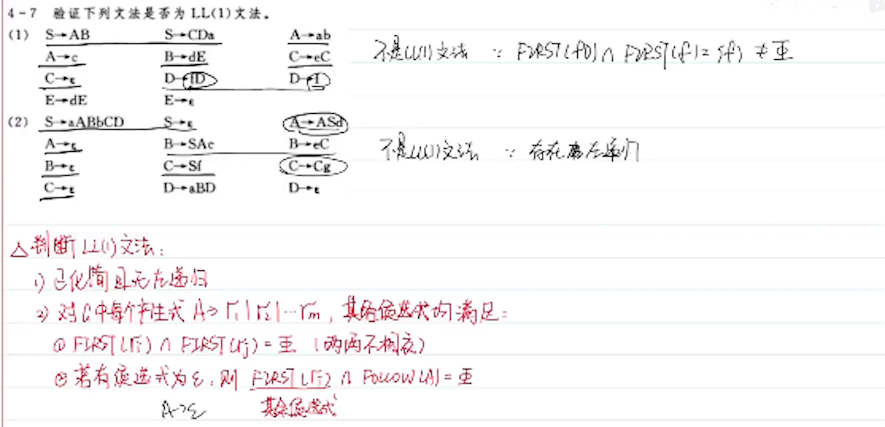 4-7 验证下列文法是否为 LL(1)文法。
(1) S→AB S→CDa A→ab
A→c B→dE C→eC
C→ε D→fD D→f
E→dE E→ε
不是LL(1)文法 ∵ FIRST(fD)∩FIRST(f)={f}≠Φ
(2) S→aABbCD S→ε A→ASd
A→ε B→SAc B→eC
B→ε C→Sf C→Cg
C→ε D→aBD D→ε
不是LL(1)文法 ∵ 存在左递归
△判断LL(1)文法:
1) 已化简且无左递归
2) 对G中每个产生式 A→r₁|r₂|…rm, 其各候选式均满足:
① FIRST(ri)∩FIRST(rj)=Φ (两两不相交)
② 若有候选式为ε, 则 FIRST(ri)∩FOLLOW(A)=Φ
A→ε 其余候选式